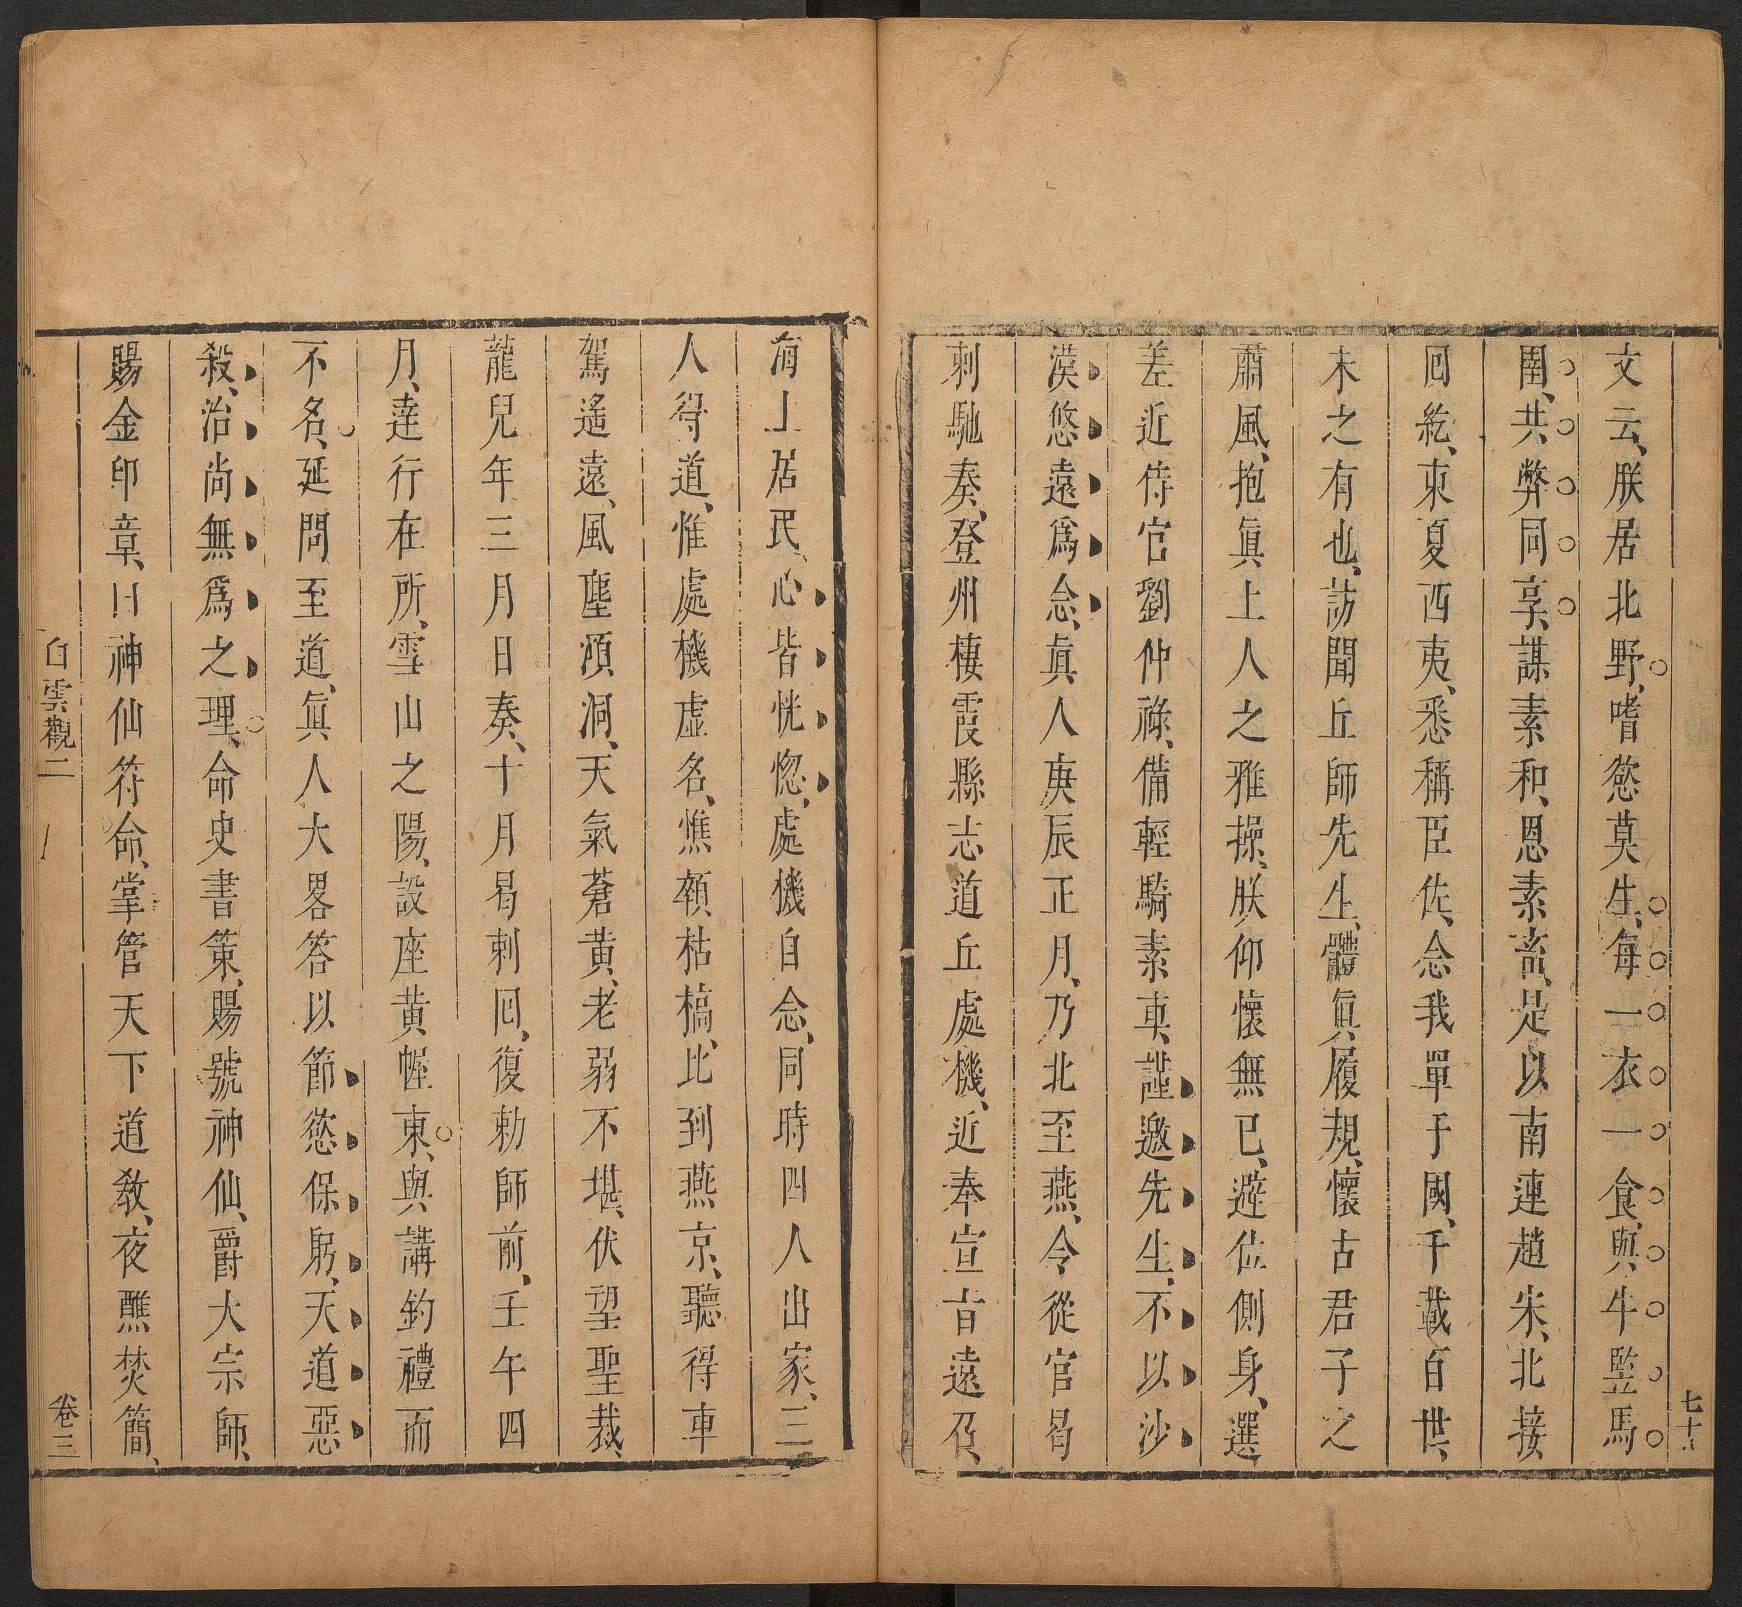 文云、朕居北野、嗜慾莫生、每一衣一食、與牛豎馬
圉、共弊同享、謀素和、恩素畜、是以南連趙宋、北接
囘紇、東夏西夷、悉稱臣佐、念我單于國、千載百世、
未之有也、訪聞丘師先生、體眞履規、懷古君子之
肅風、抱眞上人之雅操、朕仰懷無已、避位側身、選
差近侍官劉仲祿、備輕騎素車、謹邀先生、不以沙
漠悠遠爲念、眞人庚辰正月、乃北至燕、令從官曷
剌馳奏、登州棲霞縣志道丘處機、近奉宣旨遠召、
海上居民、心皆恍惚、處機自念、同時四人出家、三
人得道、惟處機虛名、憔顇枯槁、比到燕京、聽得車
駕遙遠、風塵澒洞、天氣蒼黃、老弱不堪、伏望聖裁、
龍兒年三月日奏、十月曷剌囘、復勅師前、壬午四
月、達行在所、雪山之陽、設座黃幄東、與講鈞禮而
不名、延問至道、眞人大畧答以節慾保躬、天道惡
殺、治尚無爲之理、命史書策、賜號神仙、爵大宗師、
賜金印章、曰神仙符命、掌管天下道敎、夜醮焚簡、
白雲觀二
卷三